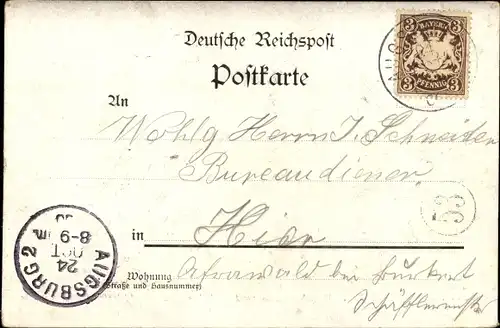 Deutsche Reichspost
Postkarte
3 BAYERN 3
3 PFENNIG 3
AUGSB
An
Wohlg Herrn J. Schneider
Bureaudiener
53
in Hier
Wohnung
(Straße und Hausnummer)
bei
AUGSBURG 2
24
OCT
8-9